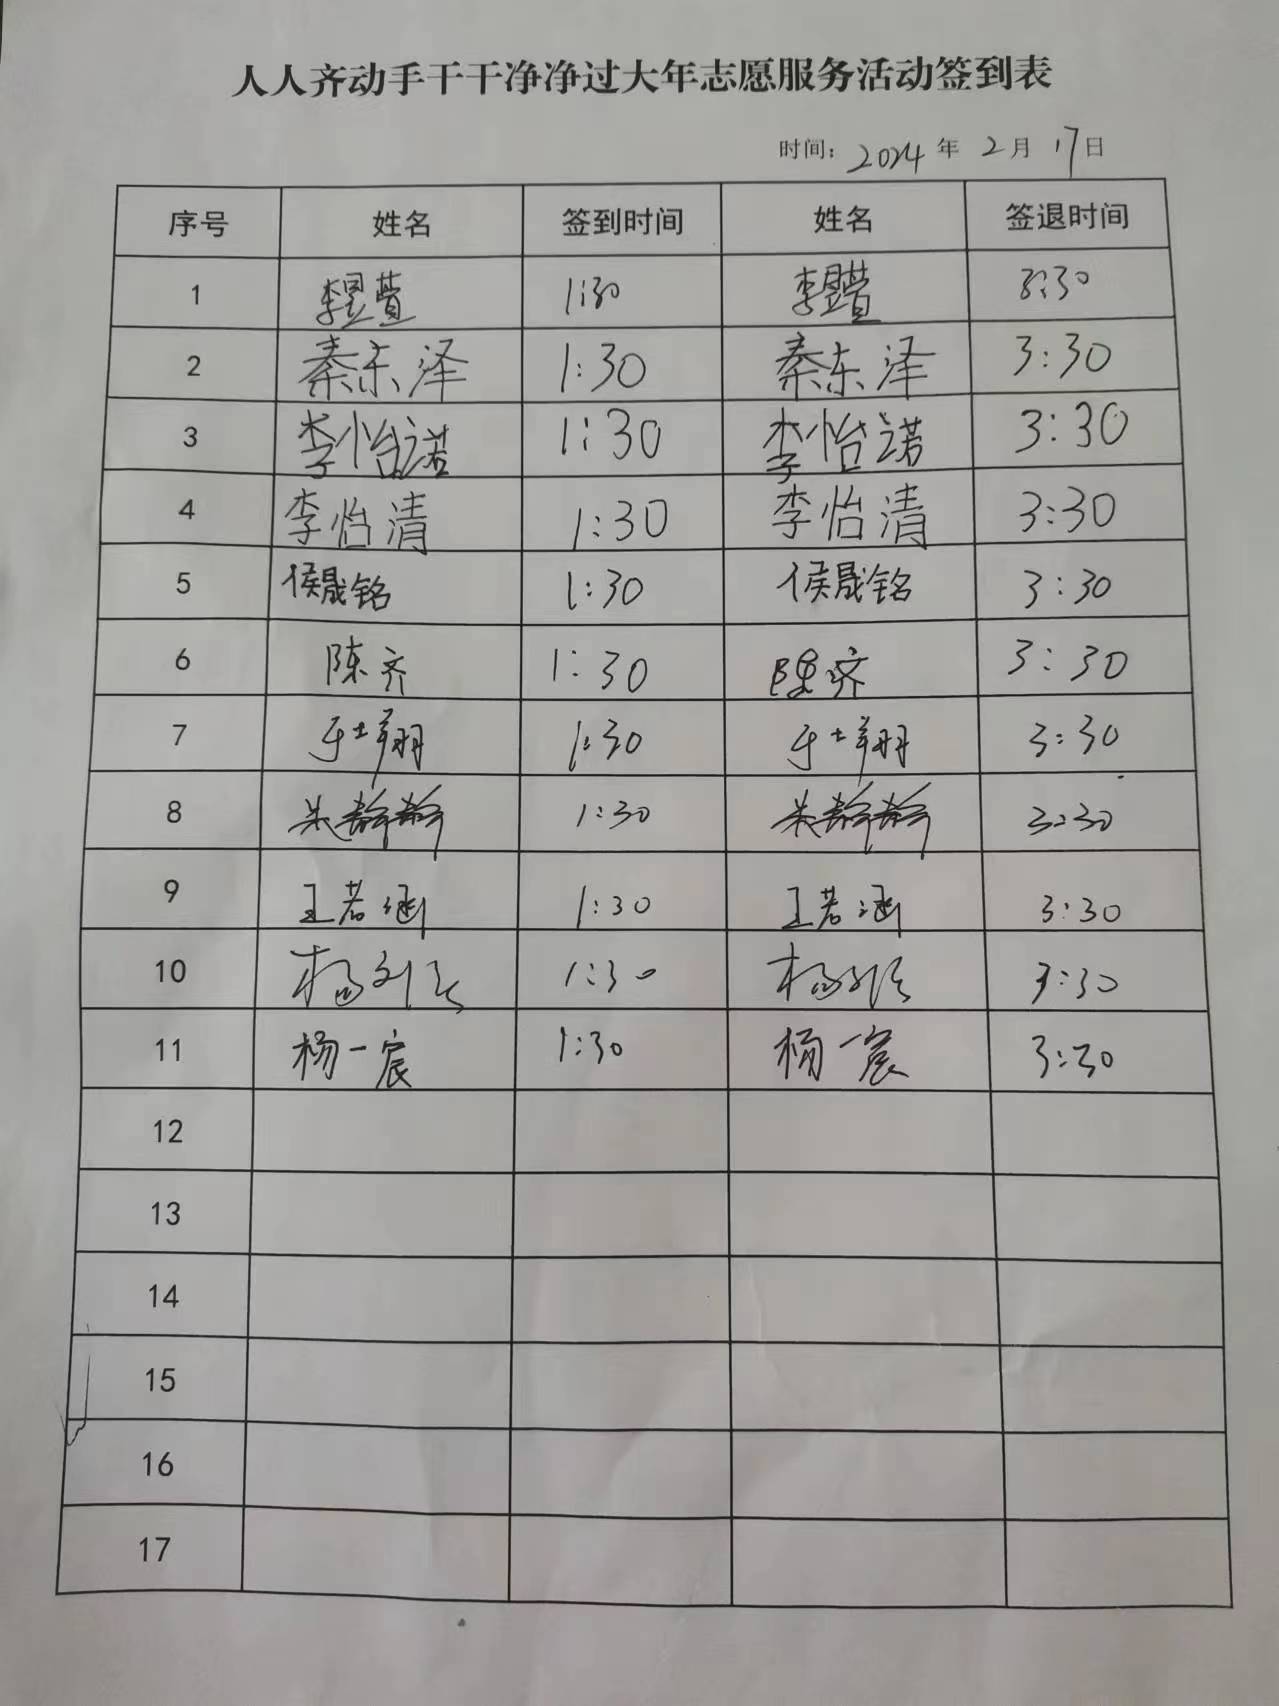 人人齐动手干干净净过大年志愿服务活动签到表
时间：2024年2月17日
序号 姓名 签到时间 姓名 签退时间
1 李昱萱 1:30 李昱萱 3:30
2 秦东泽 1:30 秦东泽 3:30
3 李怡诺 1:30 李怡诺 3:30
4 李怡清 1:30 李怡清 3:30
5 侯晟铭 1:30 侯晟铭 3:30
6 陈齐 1:30 陈齐 3:30
7 于士翔 1:30 于士翔 3:30
8 朱静静 1:30 朱静静 3:30
9 王若涵 1:30 王若涵 3:30
10 杨 1:30 杨 3:30
11 杨一宸 1:30 杨一宸 3:30
12
13
14
15
16
17